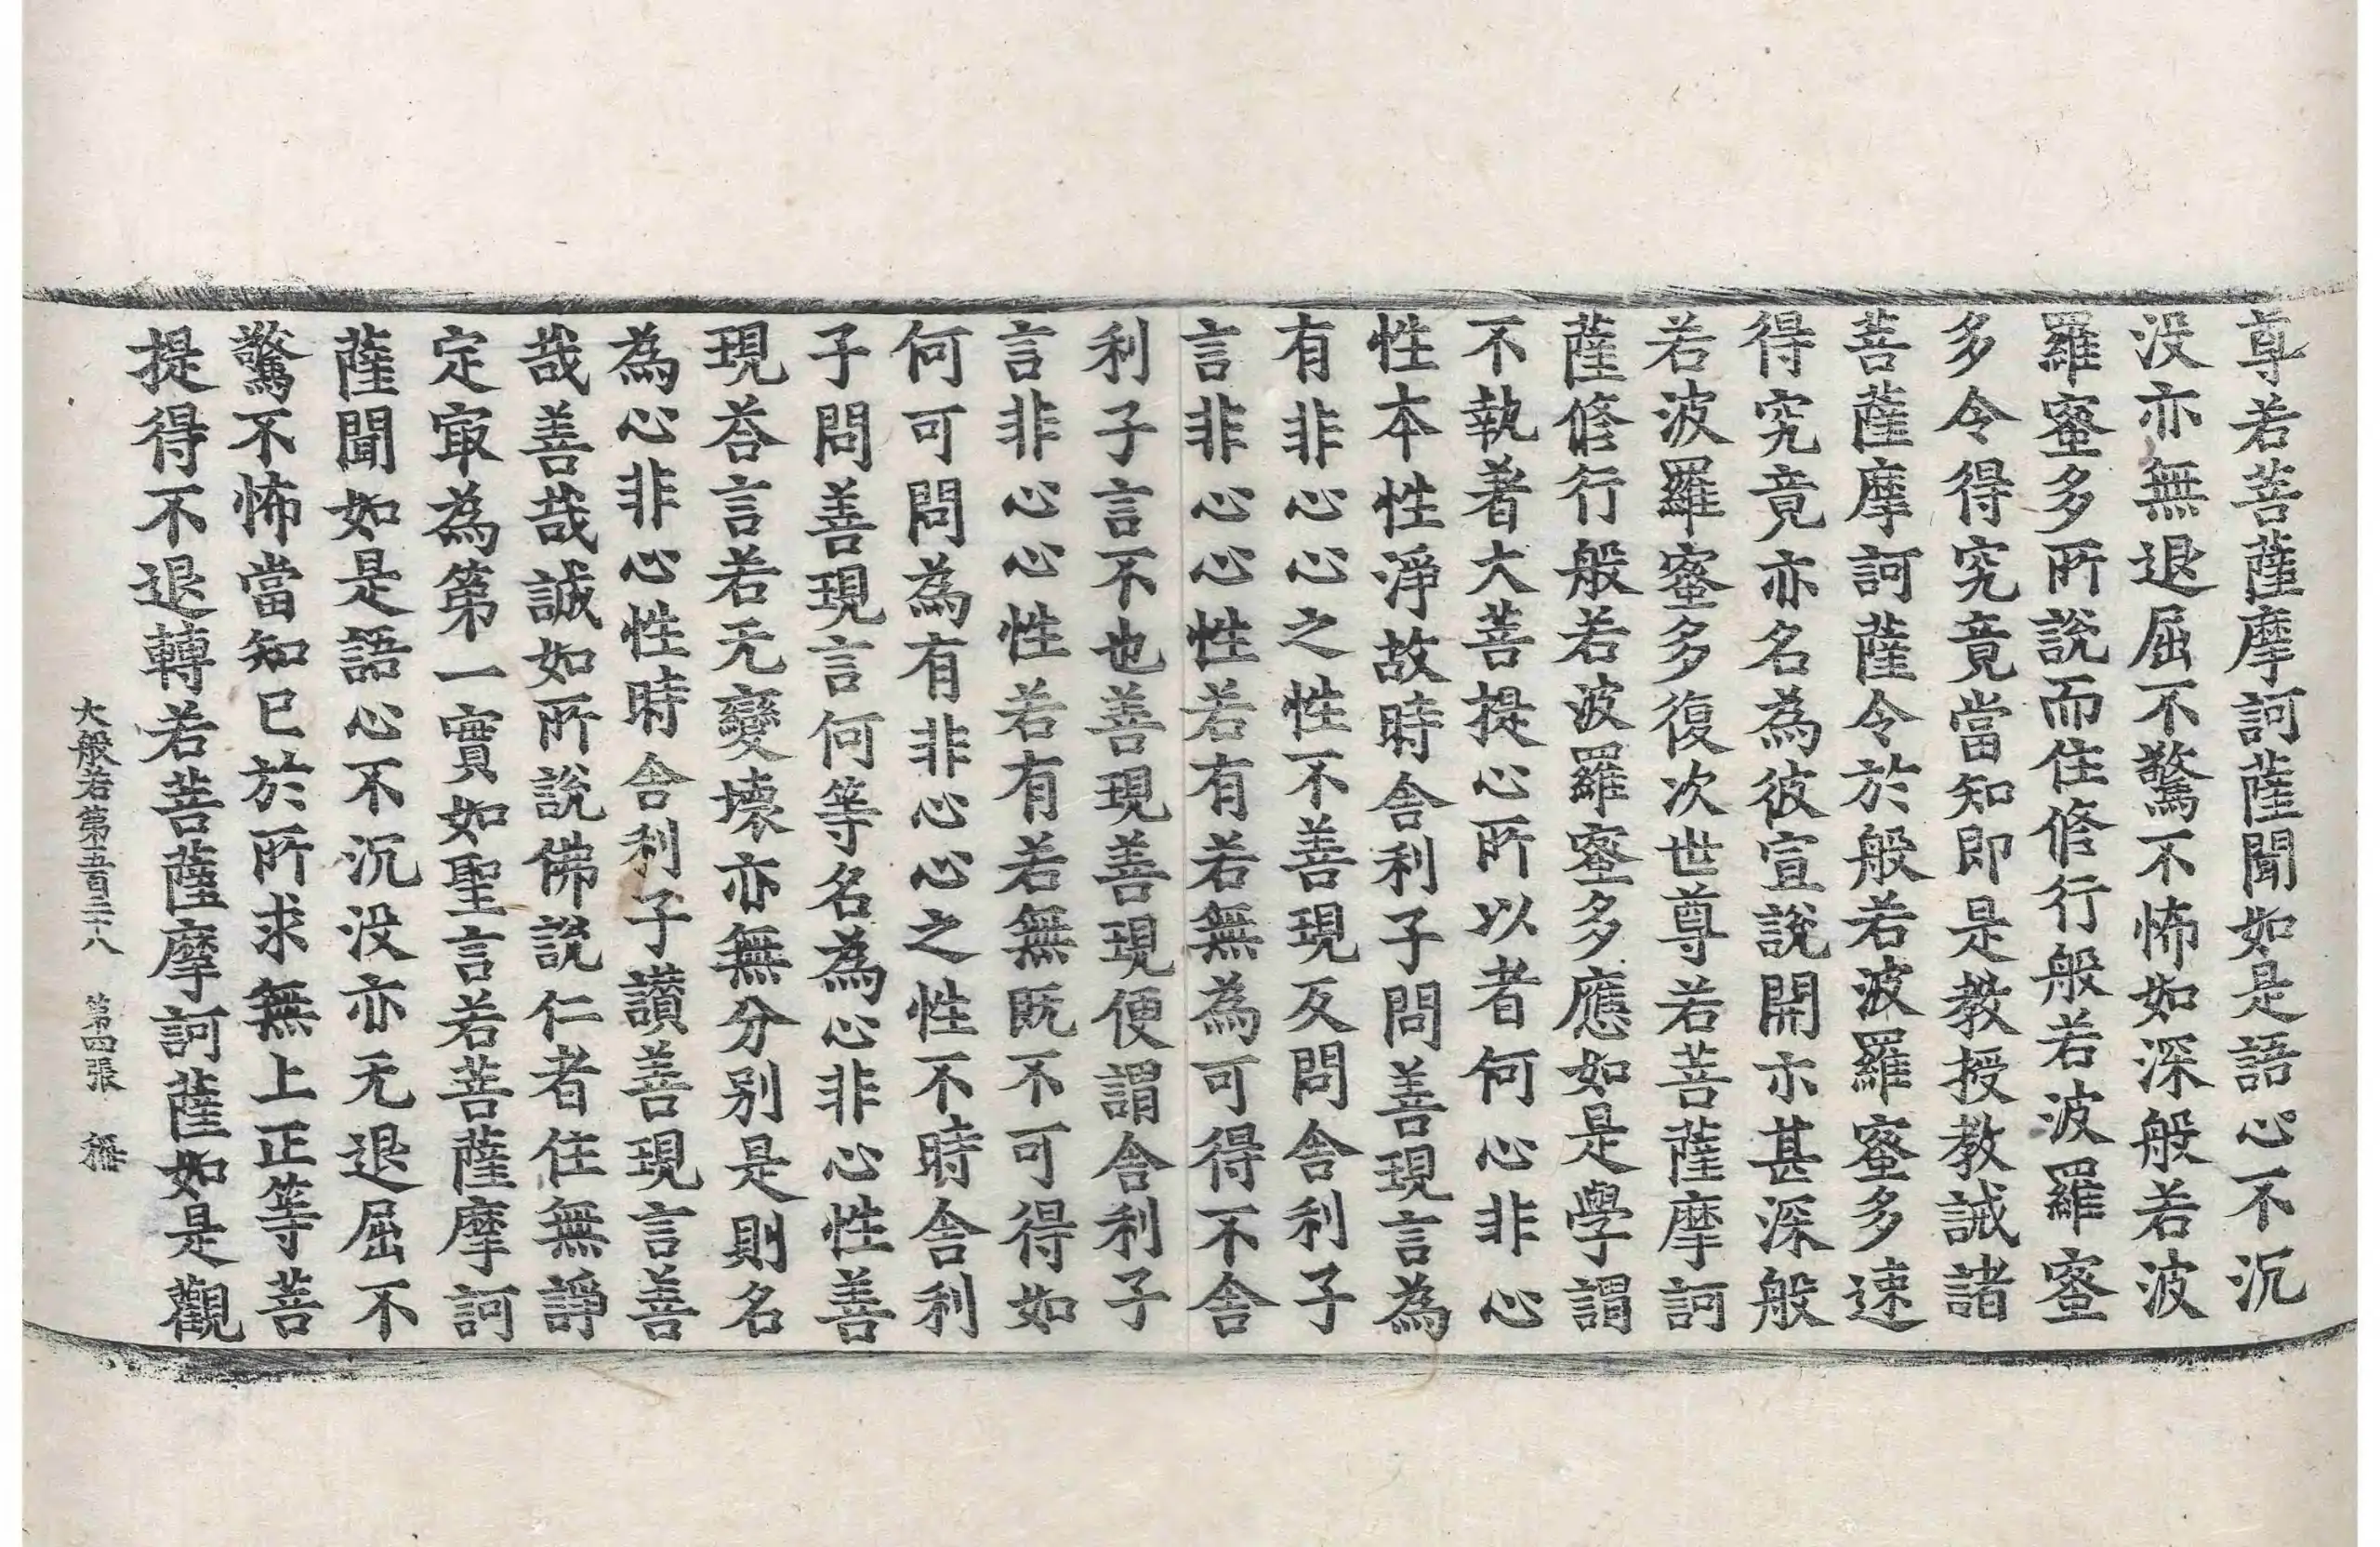 尊若菩薩摩訶薩聞如是語心不沉
没亦無退屈不驚不怖如深般若波
羅蜜多所說而住修行般若波羅蜜
多令得究竟當知即是教授教誡諸
菩薩摩訶薩令於般若波羅蜜多速
得究竟亦名為彼宣說開示甚深般
若波羅蜜多復次世尊若菩薩摩訶
薩修行般若波羅蜜多應如是學謂
不執著大菩提心所以者何心非心
性本性淨故時舍利子問善現言為
有非心心之性不善現反問舍利子
言非心心性若有若無為可得不舍
利子言不也善現善現便謂舍利子
言非心心性若有若無既不可得如
何可問為有非心心之性不時舍利
子問善現言何等名為心非心性善
現荅言若无變壞亦無分別是則名
為心非心性時舍利子讚善現言善
哉善哉誠如所說佛說仁者住無諍
定㝡為第一實如聖言若菩薩摩訶
薩聞如是語心不沉没亦无退屈不
驚不怖當知已於所求無上正等菩
提得不退轉若菩薩摩訶薩如是觀
大般若第五百三十八 第四張